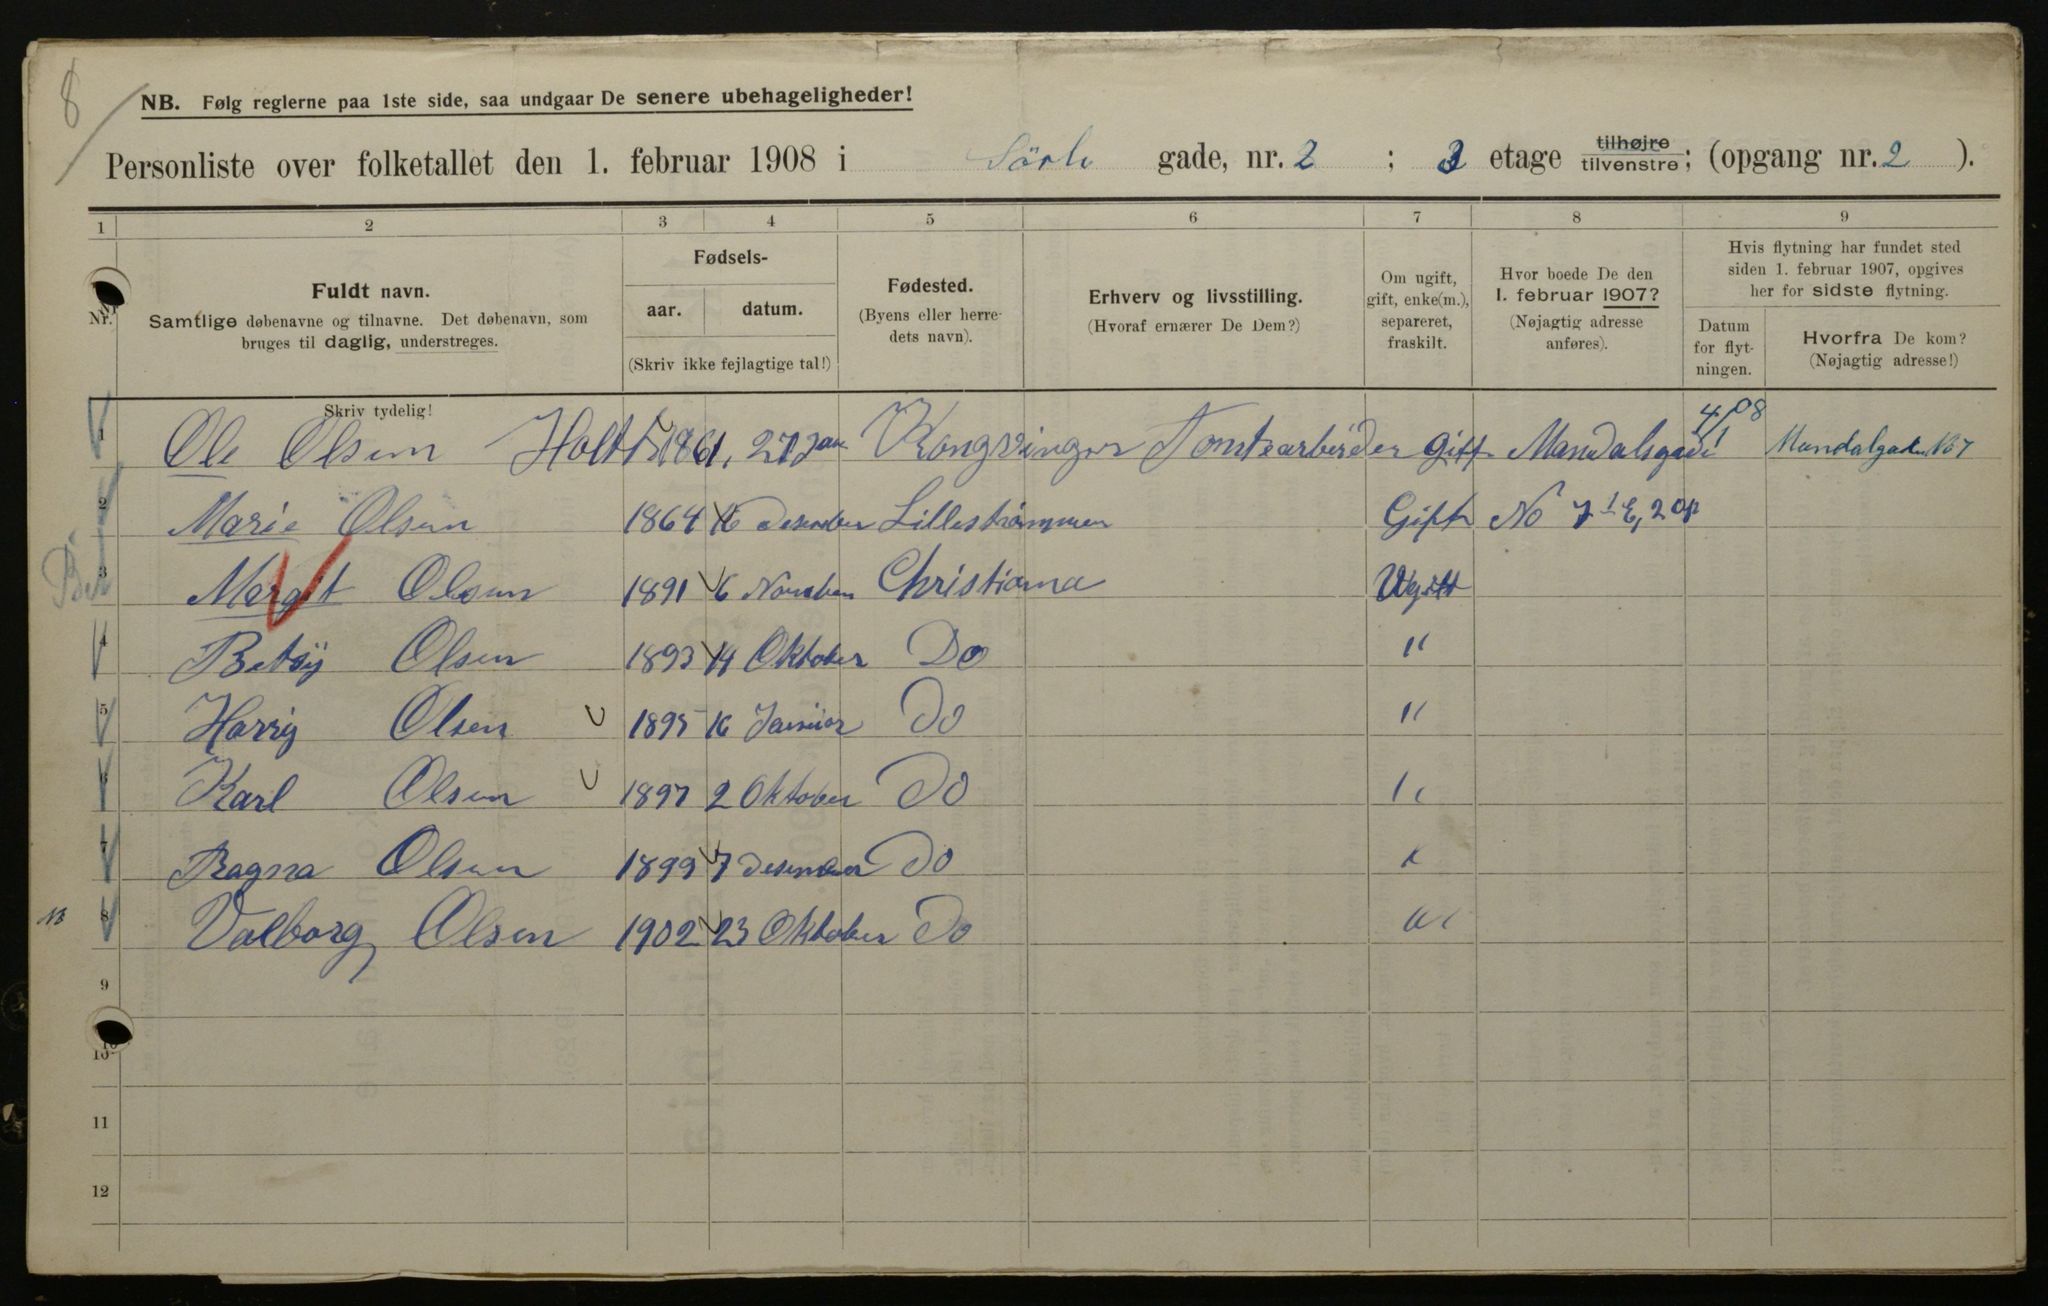 8
NB. Følg reglerne paa 1ste side, saa undgaar De senere ubehageligheder!
Personliste over folketallet den 1. februar 1908 i Sörli gade, nr. 2 ; 3 etage tilhøjre tilvenstre; (opgang nr. 2 ).
1 2 3 4 5 6 7 8 9
Nr.
Fuldt navn.
Samtlige døbenavne og tilnavne. Det døbenavn, som
bruges til daglig, understreges.
Skriv tydelig!
Fødsels-
aar. datum.
(Skriv ikke fejlagtige tal!)
Fødested.
(Byens eller herre-
dets navn).
Erhverv og livsstilling.
(Hvoraf ernærer De Dem?)
Om ugift,
gift, enke(m.),
separeret,
fraskilt.
Hvor boede De den
1. februar 1907?
(Nøjagtig adresse
anføres).
Hvis flytning har fundet sted
siden 1. februar 1907, opgives
her for sidste flytning.
Datum
for flyt-
ningen.
Hvorfra De kom?
(Nøjagtig adresse!)
1 Ole Olsen Holt 1861, 27 Jan Kongsvinger Tomtearbeider gift Mandalsgade 4/1 08 Mandalgaden No 7
2 Marie Olsen 1864 16 Desember Lillestrømmen Gift No 7 1 E, 2 op
3 Margit Olsen 1891 6 November Christiania Ugift
4 Betsy Olsen 1893 14 Oktober Do "
5 Harry Olsen 1895 16 Januar Do "
6 Karl Olsen 1897 2 Oktober Do "
7 Ragna Olsen 1899 7 Desember Do "
NB 8 Valborg Olsen 1902 23 Oktober Do "
9
10
11
12